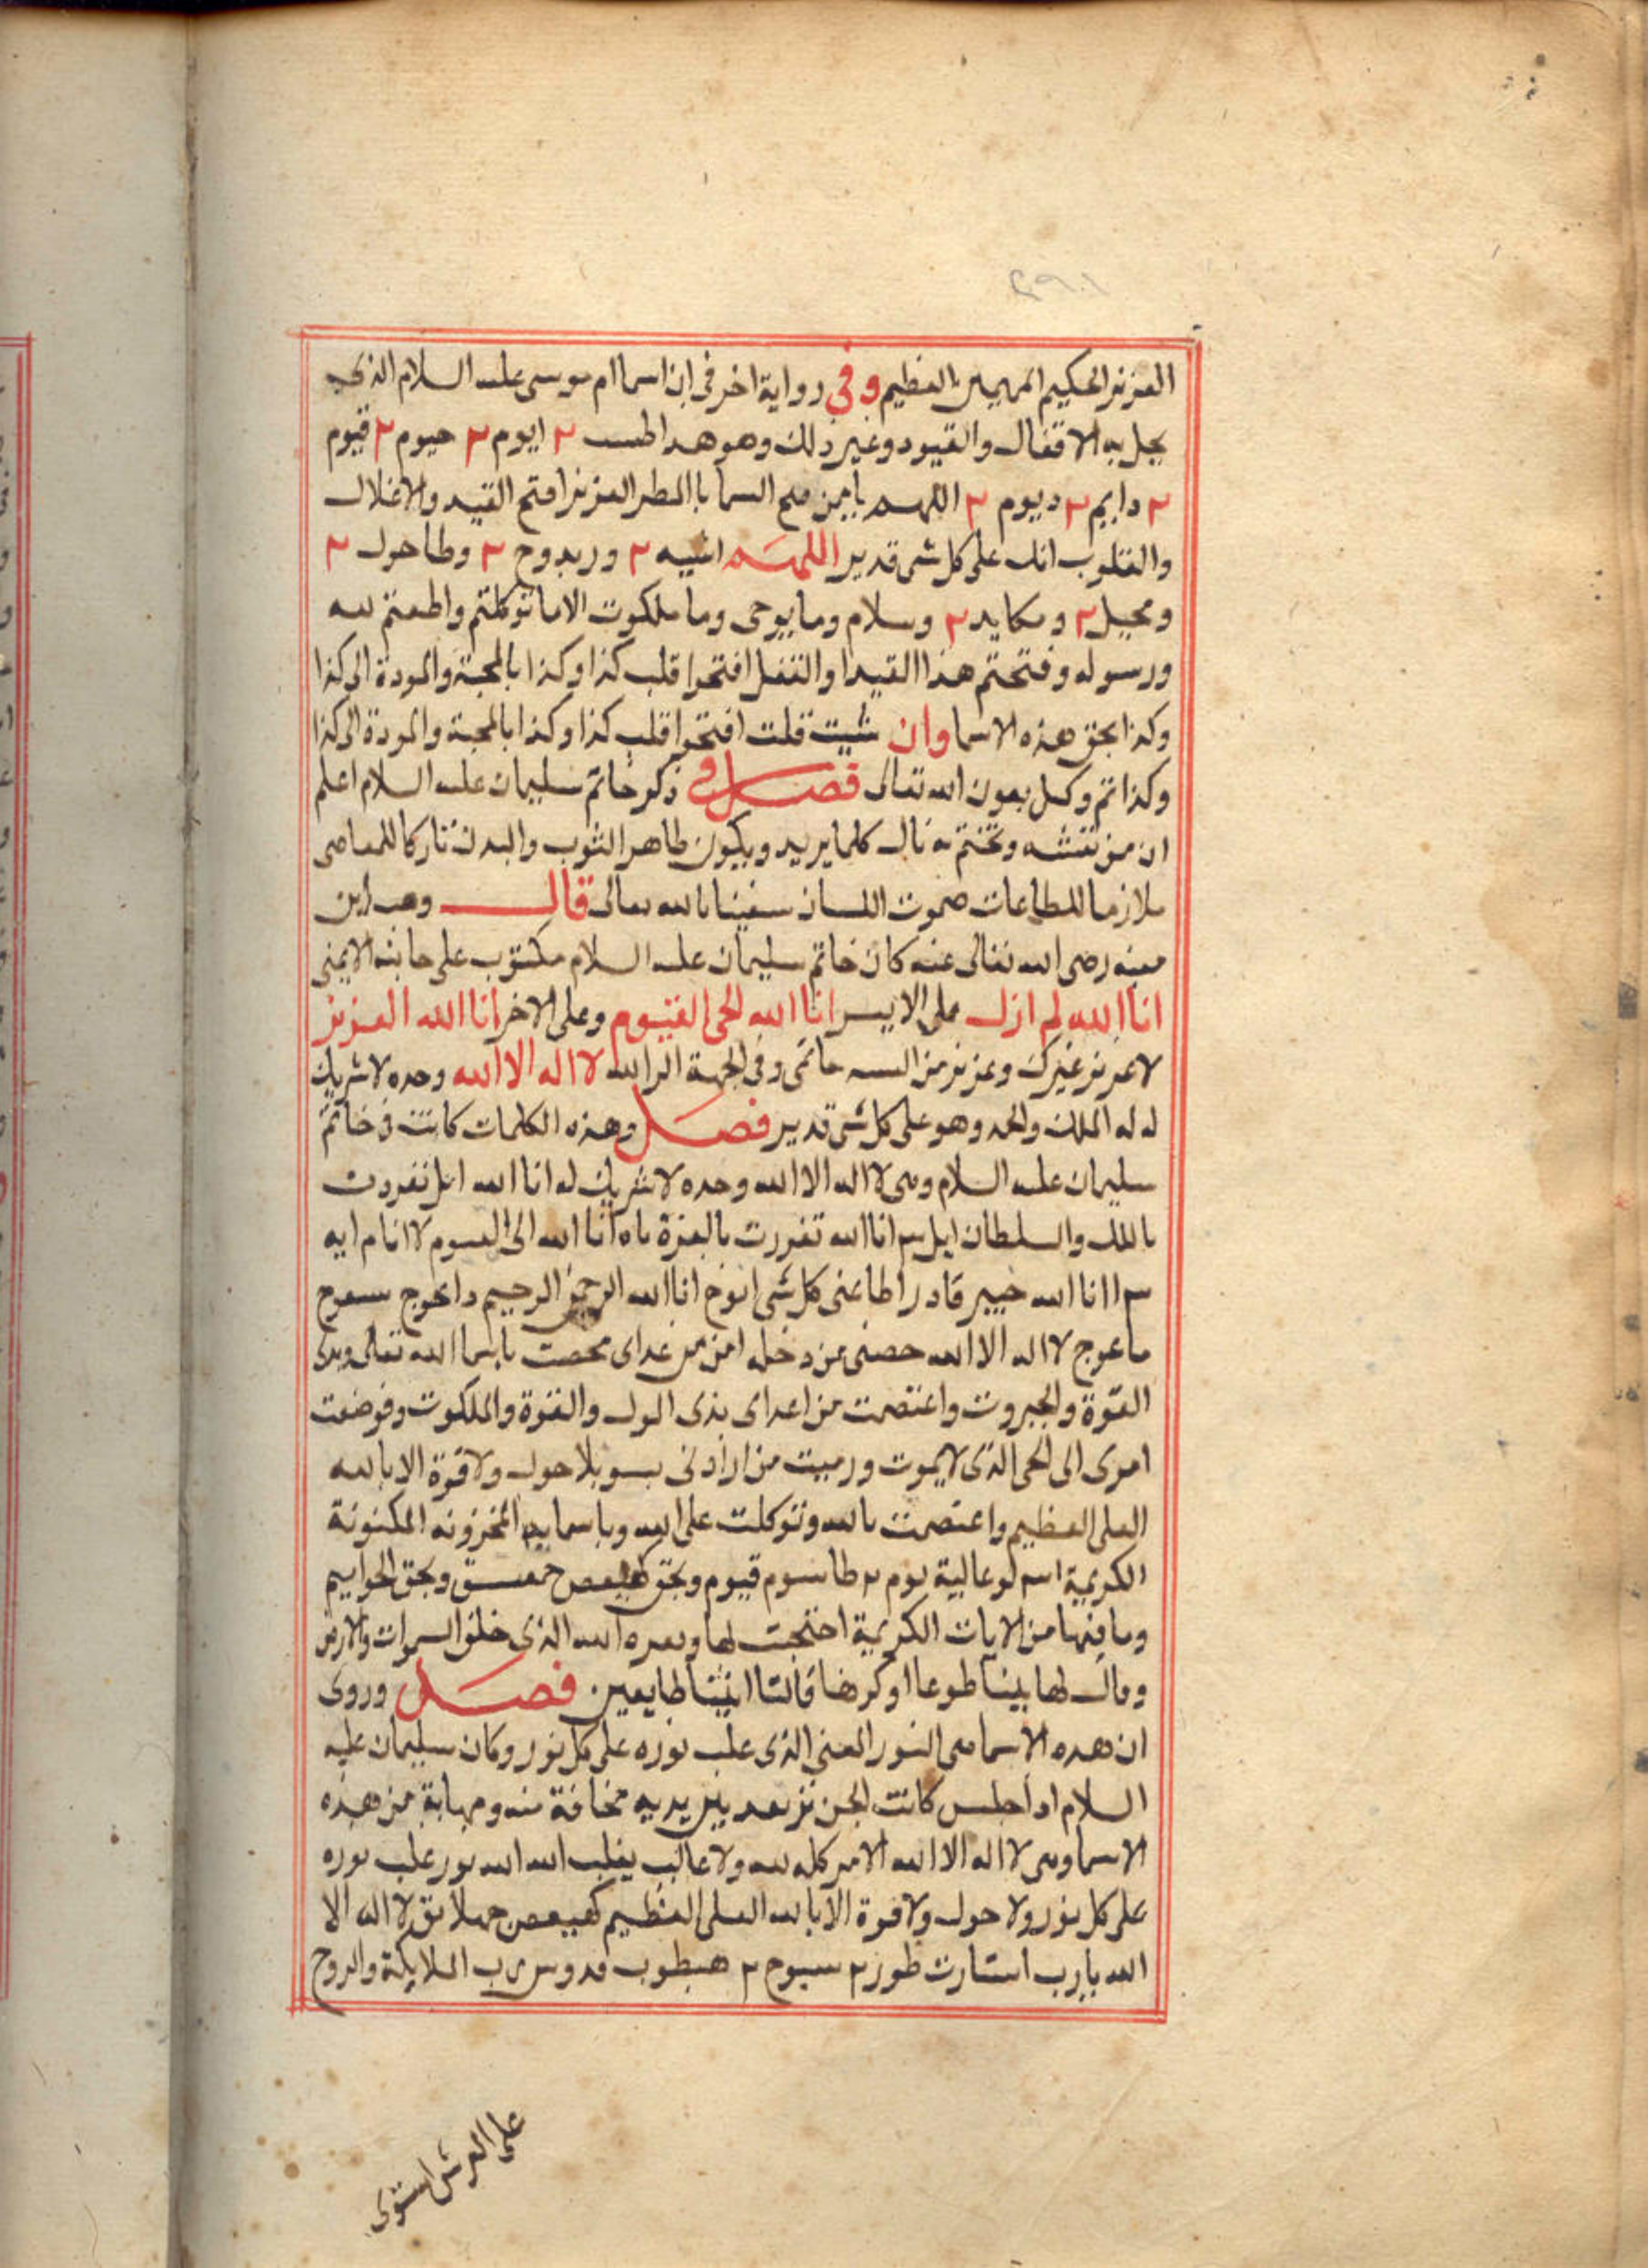 العزيز الحكيم المهيمن العظيم وفي رواية اخر في ان اسما ام موسى عليه السلام الذي
يحل به الاقفال والقيود وغير ذلك وهو هدا ٢ ايوم ٢ حيوم ٢ قيوم
٢ دايم ٢ ديوم ٢ اللهم يا من السما العزيز افتح القيد والاغلال
والقلوب انك على كل شى قدير اللهم ٢ وربدوح ٢ وطاحول ٢
ومحيل ٢ ومكايد ٢ وسلام وما يوحى وما ملكوت الا ما توكلتم واطعتم لله
ورسوله وفتحتم هذا القيد او القفل افتحوا قلب كذا وكذا بالمحبة والمودة الى كذا
وكذا بحق هذه الاسما وان شيت قلت افتحوا قلب كذا وكذا بالمحبة والمودة الى كذا
وكذا تم وكمل بعون الله تعالى فصل في ذكر خاتم سليمان عليه السلام اعلم
ان من نقشه وتختم به نال كلما يريد ويكون طاهر الثوب والبدن تاركا للمعاصى
ملازما للطاعات صموت اللسان بالله تعالى قال وهب ابن
منبه رضى الله تعالى عنه كان خاتم سليمان عليه السلام مكتوب على جانبه الايمن
انا الله لم ازل على الايسر انا الله الحى القيوم وعلى الاخر انا الله العزيز
لا عزيز غيرى وعزيز من خاتمى وفى الجهة الرابعه لا اله الا الله وحده لا شريك
له له الملك والحمد وهو على كل شى قدير فصل وهذه الكلمات كانت فى خاتم
سليمان عليه السلام وهى لا اله الا الله وحده لا شريك له انا الله تفردت
بالملك والسلطان انا الله تفررت بالعزة ياه انا الله الحى القيوم لا انام ايه
انا الله خبير قادر اطاعنى كل شى انوخ انا الله الرحمن الرحيم
ماعوج لا اله الا الله حصنى من دخله امن من عداى تحصنت باسما الله تعالى وبذى
القوة والجبروت واعتصمت من اعداى بذى الحول والقوة والملكوت وفوضت
امرى الى الحى الذى لا يموت ورميت من ارادنى بسو بلا حول ولا قوة الا بالله
العلى العظيم واعتصمت بالله وتوكلت على الله وباسمايه المخزونه المكنونة
الكريمة عالية يوم ٢ طاسوم قيوم وبحق كهيعص حمعسق وبحق الحواميم
وما فيها من الايات الكريمة احتجبت لها وبعزه الله الذى خلق السموات والارض
وقال لها يينا طوعا او كرها قالتا اتينا طايعين فصل وروى
ان هده الاسما هى النور الذى غلب نوره على كل نور وكان سليمان عليه
السلام ادا جلس كانت الجن ترتعد بين يديه مخافة منه ومهابة من هذه
الاسما وهى لا اله الا الله الامر كله لله ولا غالب يغلب الله الله نور غلب نوره
على كل نور ولا حول ولا قوة الا بالله العلى العظيم كهيعص لا اله الا
الله يا رب استنارت طور ٢ سبوح ٢ هبطوب قدوس رب الملايكة والروح
على العرش استوى